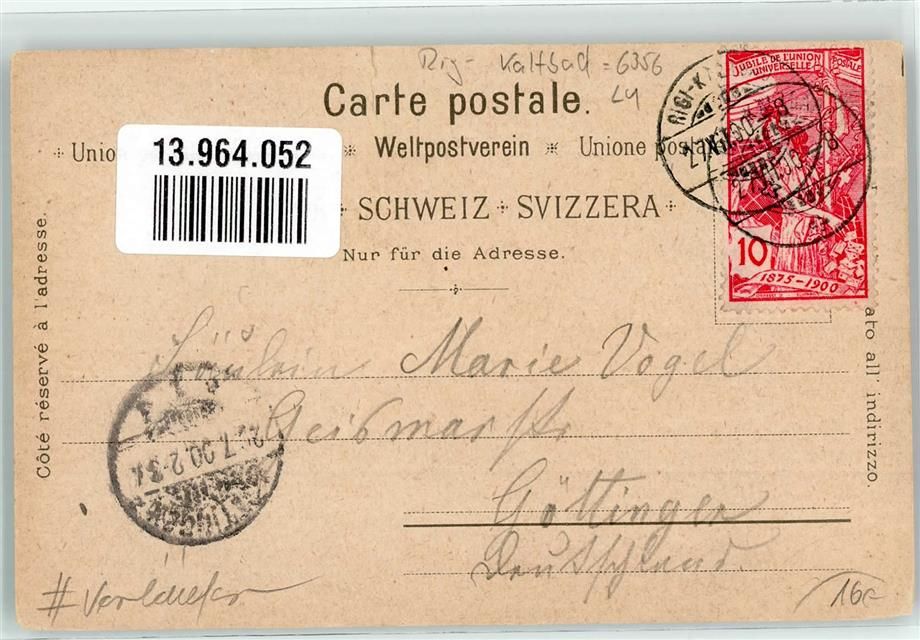 Rig- Kaltbad = 6356
LU
Carte postale.
Unio
Weltpostverein * Unione posta
SCHWEIZ SVIZZERA
Nur für die Adresse.
13.964.052
Côté réservé à l'adresse.
ato all' indirizzo.
JUBILÉ DE L'UNION POSTALE
UNIVERSELLE
10
1875-1900
RIGI-K
Fräulein Marie Vogel
Geismarstr
Göttingen
Deutschland.
7.00.2-3
# Vorläufer
16.-